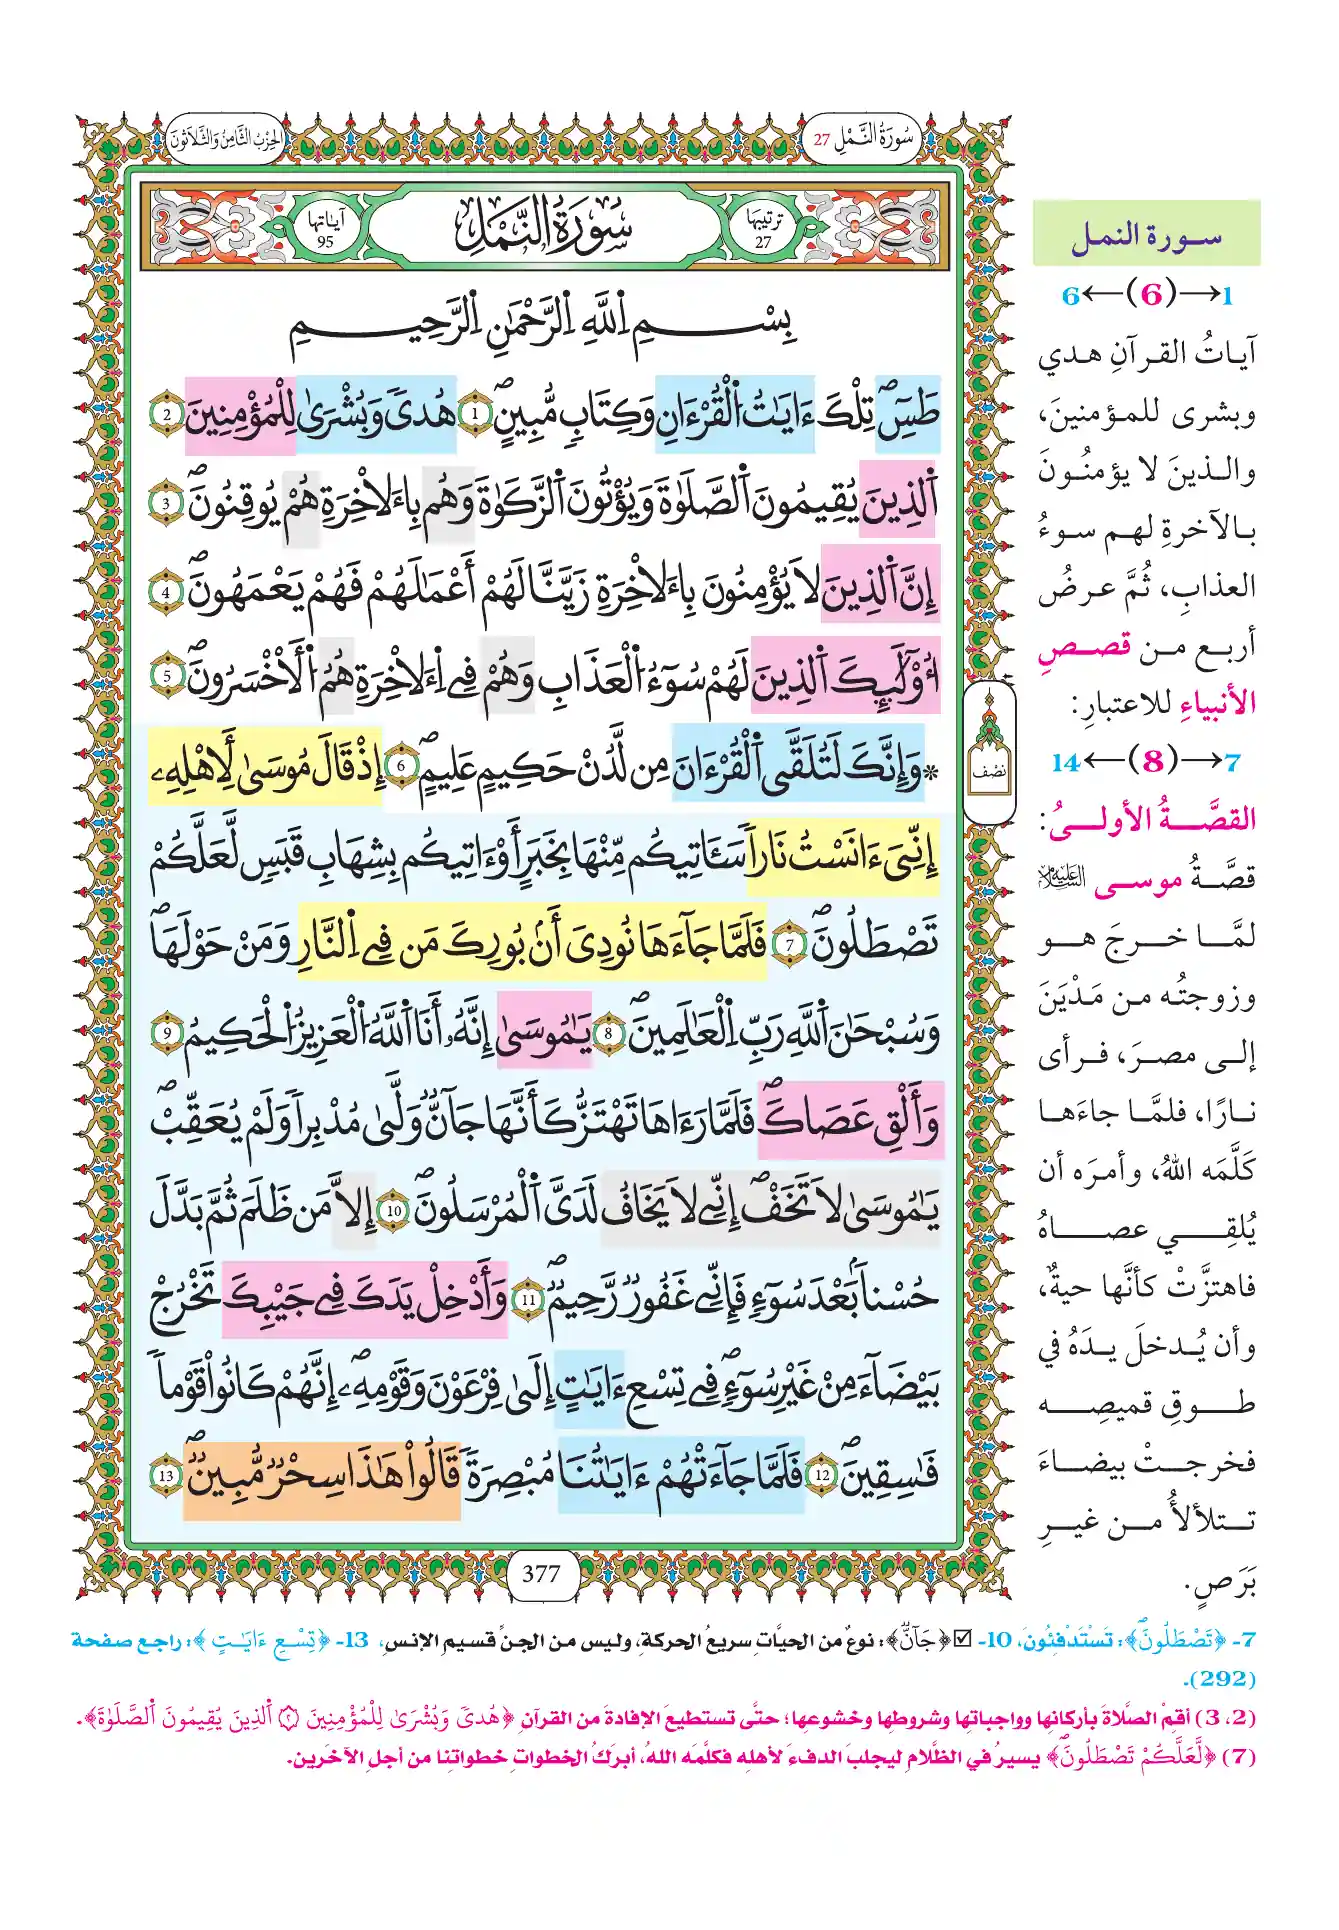 سُورَةُ النَّمْلِ 27
الحِزْبُ الثَّامِنُ وَالثَّلَاثُونَ
ترتيبها
27
سُورَةُ النَّمْلِ
آياتها
95
بِسْمِ اِللَّهِ اِلرَّحْمَٰنِ اِلرَّحِيمِ
طَسِٓۖ تِلْكَ ءَايَٰتُ اُلْقُرْءَانِ وَكِتَابٖ مُّبِينٍۖ 1 هُدىٗ وَبُشْرَىٰ لِلْمُؤْمِنِينَ 2
اَ۬لذِينَ يُقِيمُونَ اَ۬لصَّلَوٰةَ وَيُؤْتُونَ اَ۬لزَّكَوٰةَ وَهُم بِالَاخِرَةِ هُمْ يُوقِنُونَۖ 3
إِنَّ اَ۬لذِينَ لَا يُؤْمِنُونَ بِالَاخِرَةِ زَيَّنَّا لَهُمُۥٓ أَعْمَٰلَهُمْ فَهُمْ يَعْمَهُونَۖ 4
أُوْلَٰٓئِكَ اَ۬لذِينَ لَهُمْ سُوٓءُ اُ۬لْعَذَابِ وَهُمْ فِے اِ۬لَاخِرَةِ هُمُ اُ۬لَاخْسَرُونَۖ 5
* وَإِنَّكَ لَتُلَقَّى اَ۬لْقُرْءَانَ مِن لَّدُنْ حَكِيمٍ عَلِيمٍۖ 6 إِذْ قَالَ مُوسَىٰ لِأَهْلِهِۦٓ
إِنِّيَ ءَانَسْتُ نَاراٗ سَـَٔاتِيكُم مِّنْهَا بِخَبَرٍ اَوَ اٰتِيكُم بِشِهَابِ قَبَسٖ لَّعَلَّكُمْ
تَصْطَلُونَۖ 7 فَلَمَّا جَآءَهَا نُودِيَ أَنۢ بُورِكَ مَن فِے اِ۬لنَّارِ وَمَنْ حَوْلَهَاۖ
وَسُبْحَٰنَ اَ۬للَّهِ رَبِّ اِ۬لْعَٰلَمِينَۖ 8 يَٰمُوسَىٰٓ إِنَّهُۥٓ أَنَا اَ۬للَّهُ اُ۬لْعَزِيزُ اُ۬لْحَكِيمُ 9
وَأَلْقِ عَصَاكَۖ فَلَمَّا رَءَاهَا تَهْتَزُّ كَأَنَّهَا جَآنّٞ وَلَّىٰ مُدْبِراٗ وَلَمْ يُعَقِّبْۖ
يَٰمُوسَىٰ لَا تَخَفِۖ اِنِّے لَا يَخَافُ لَدَيَّ اَ۬لْمُرْسَلُونَۖ 10 إِلَّا مَن ظَلَمَ ثُمَّ بَدَّلَ
حُسْناَۢ بَعْدَ سُوٓءٖ فَإِنِّے غَفُورٞ رَّحِيمٞۖ 11 وَأَدْخِلْ يَدَكَ فِے جَيْبِكَ تَخْرُجْ
بَيْضَآءَ مِنْ غَيْرِ سُوٓءٖۖ فِے تِسْعِ ءَايَٰتٍ اِلَىٰ فِرْعَوْنَ وَقَوْمِهِۦٓۖ إِنَّهُمْ كَانُواْ قَوْماٗ
فَٰسِقِينَۖ 12 فَلَمَّا جَآءَتْهُمُۥٓ ءَايَٰتُنَا مُبْصِرَةٗ قَالُواْ هَٰذَا سِحْرٞ مُّبِينٞۖ 13
نصف
377
سورة النمل
1→(6)←6
آياتُ القرآنِ هدي
وبشرى للمؤمنينَ،
والذينَ لا يؤمنُونَ
بالآخرةِ لهم سوءُ
العذابِ، ثُمَّ عرضُ
أربع من قصصِ
الأنبياءِ للاعتبارِ:
7→(8)←14
القصَّةُ الأولىُ:
قصَّةُ موسى عليه السلام
لمَّا خرجَ هو
وزوجتُه من مَدْيَنَ
إلى مصرَ، فرأى
نارًا، فلمَّا جاءَها
كَلَّمَه اللهُ، وأمرَه أن
يُلقِي عصاهُ
فاهتزَّتْ كأنَّها حيةٌ،
وأن يُدخلَ يدَهُ في
طوقِ قميصِه
فخرجتْ بيضاءَ
تتلألأُ من غيرِ
بَرَصٍ.
7- ﴿تَصْطَلُونَۖ﴾: تَسْتَدْفِئُونَ، 10- ☑ ﴿جَآنّٞ﴾: نوعٌ من الحيَّاتِ سريعُ الحركةِ، وليس من الجنِّ قسيمِ الإنسِ، 13- ﴿تِسْعِ ءَايَٰتٍ﴾: راجع صفحة
(292).
(2، 3) أقمْ الصَّلاةَ بأركانها وواجباتها وشروطها وخشوعها؛ حتَّى تستطيعَ الإفادةَ من القرآنِ ﴿هُدىٗ وَبُشْرَىٰ لِلْمُؤْمِنِينَ ۝ اَ۬لذِينَ يُقِيمُونَ اَ۬لصَّلَوٰةَ﴾.
(7) ﴿لَّعَلَّكُمْ تَصْطَلُونَۖ﴾ يسيرُ في الظَّلامِ ليجلبَ الدفءَ لأهلِه فكلَّمَه اللهُ، أبرَكُ الخطواتِ خطواتنا من أجلِ الآخَرين.